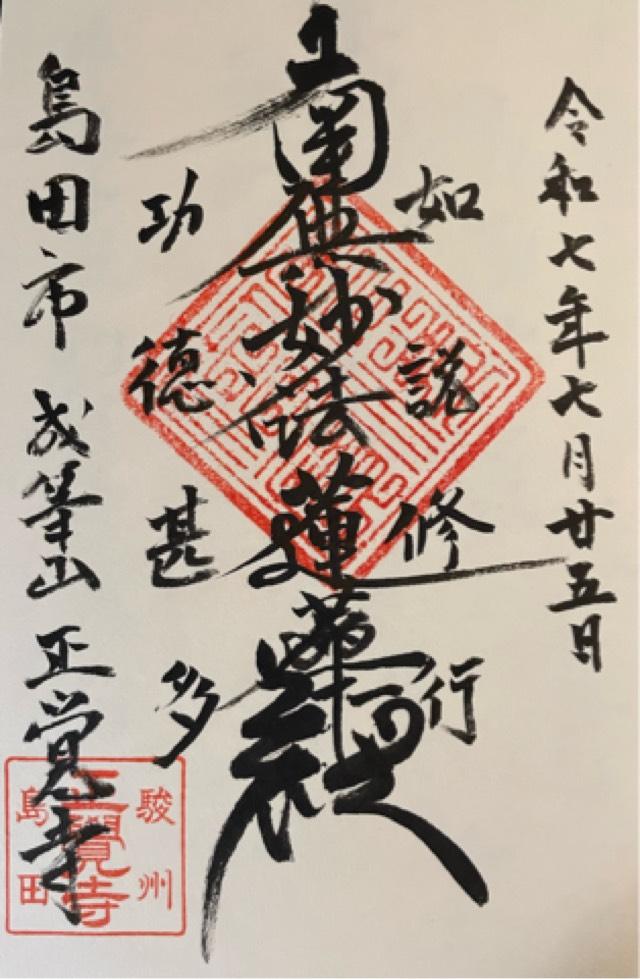 令和七年七月廿五日
如説修行
南無妙法蓮華経
功徳甚多
島田市 成等山 正覚寺
駿州
正覺寺
島田